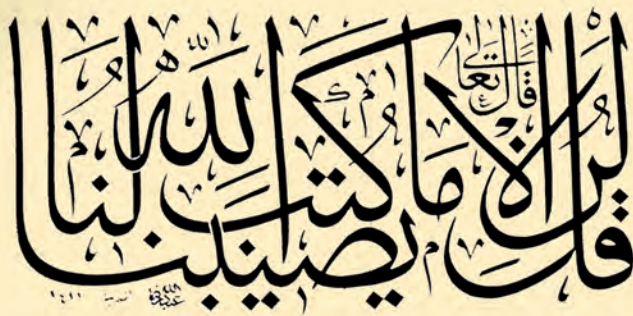 قال تعالى
قل لن يصيبنا إلا ما كتب الله لنا
١٤١١